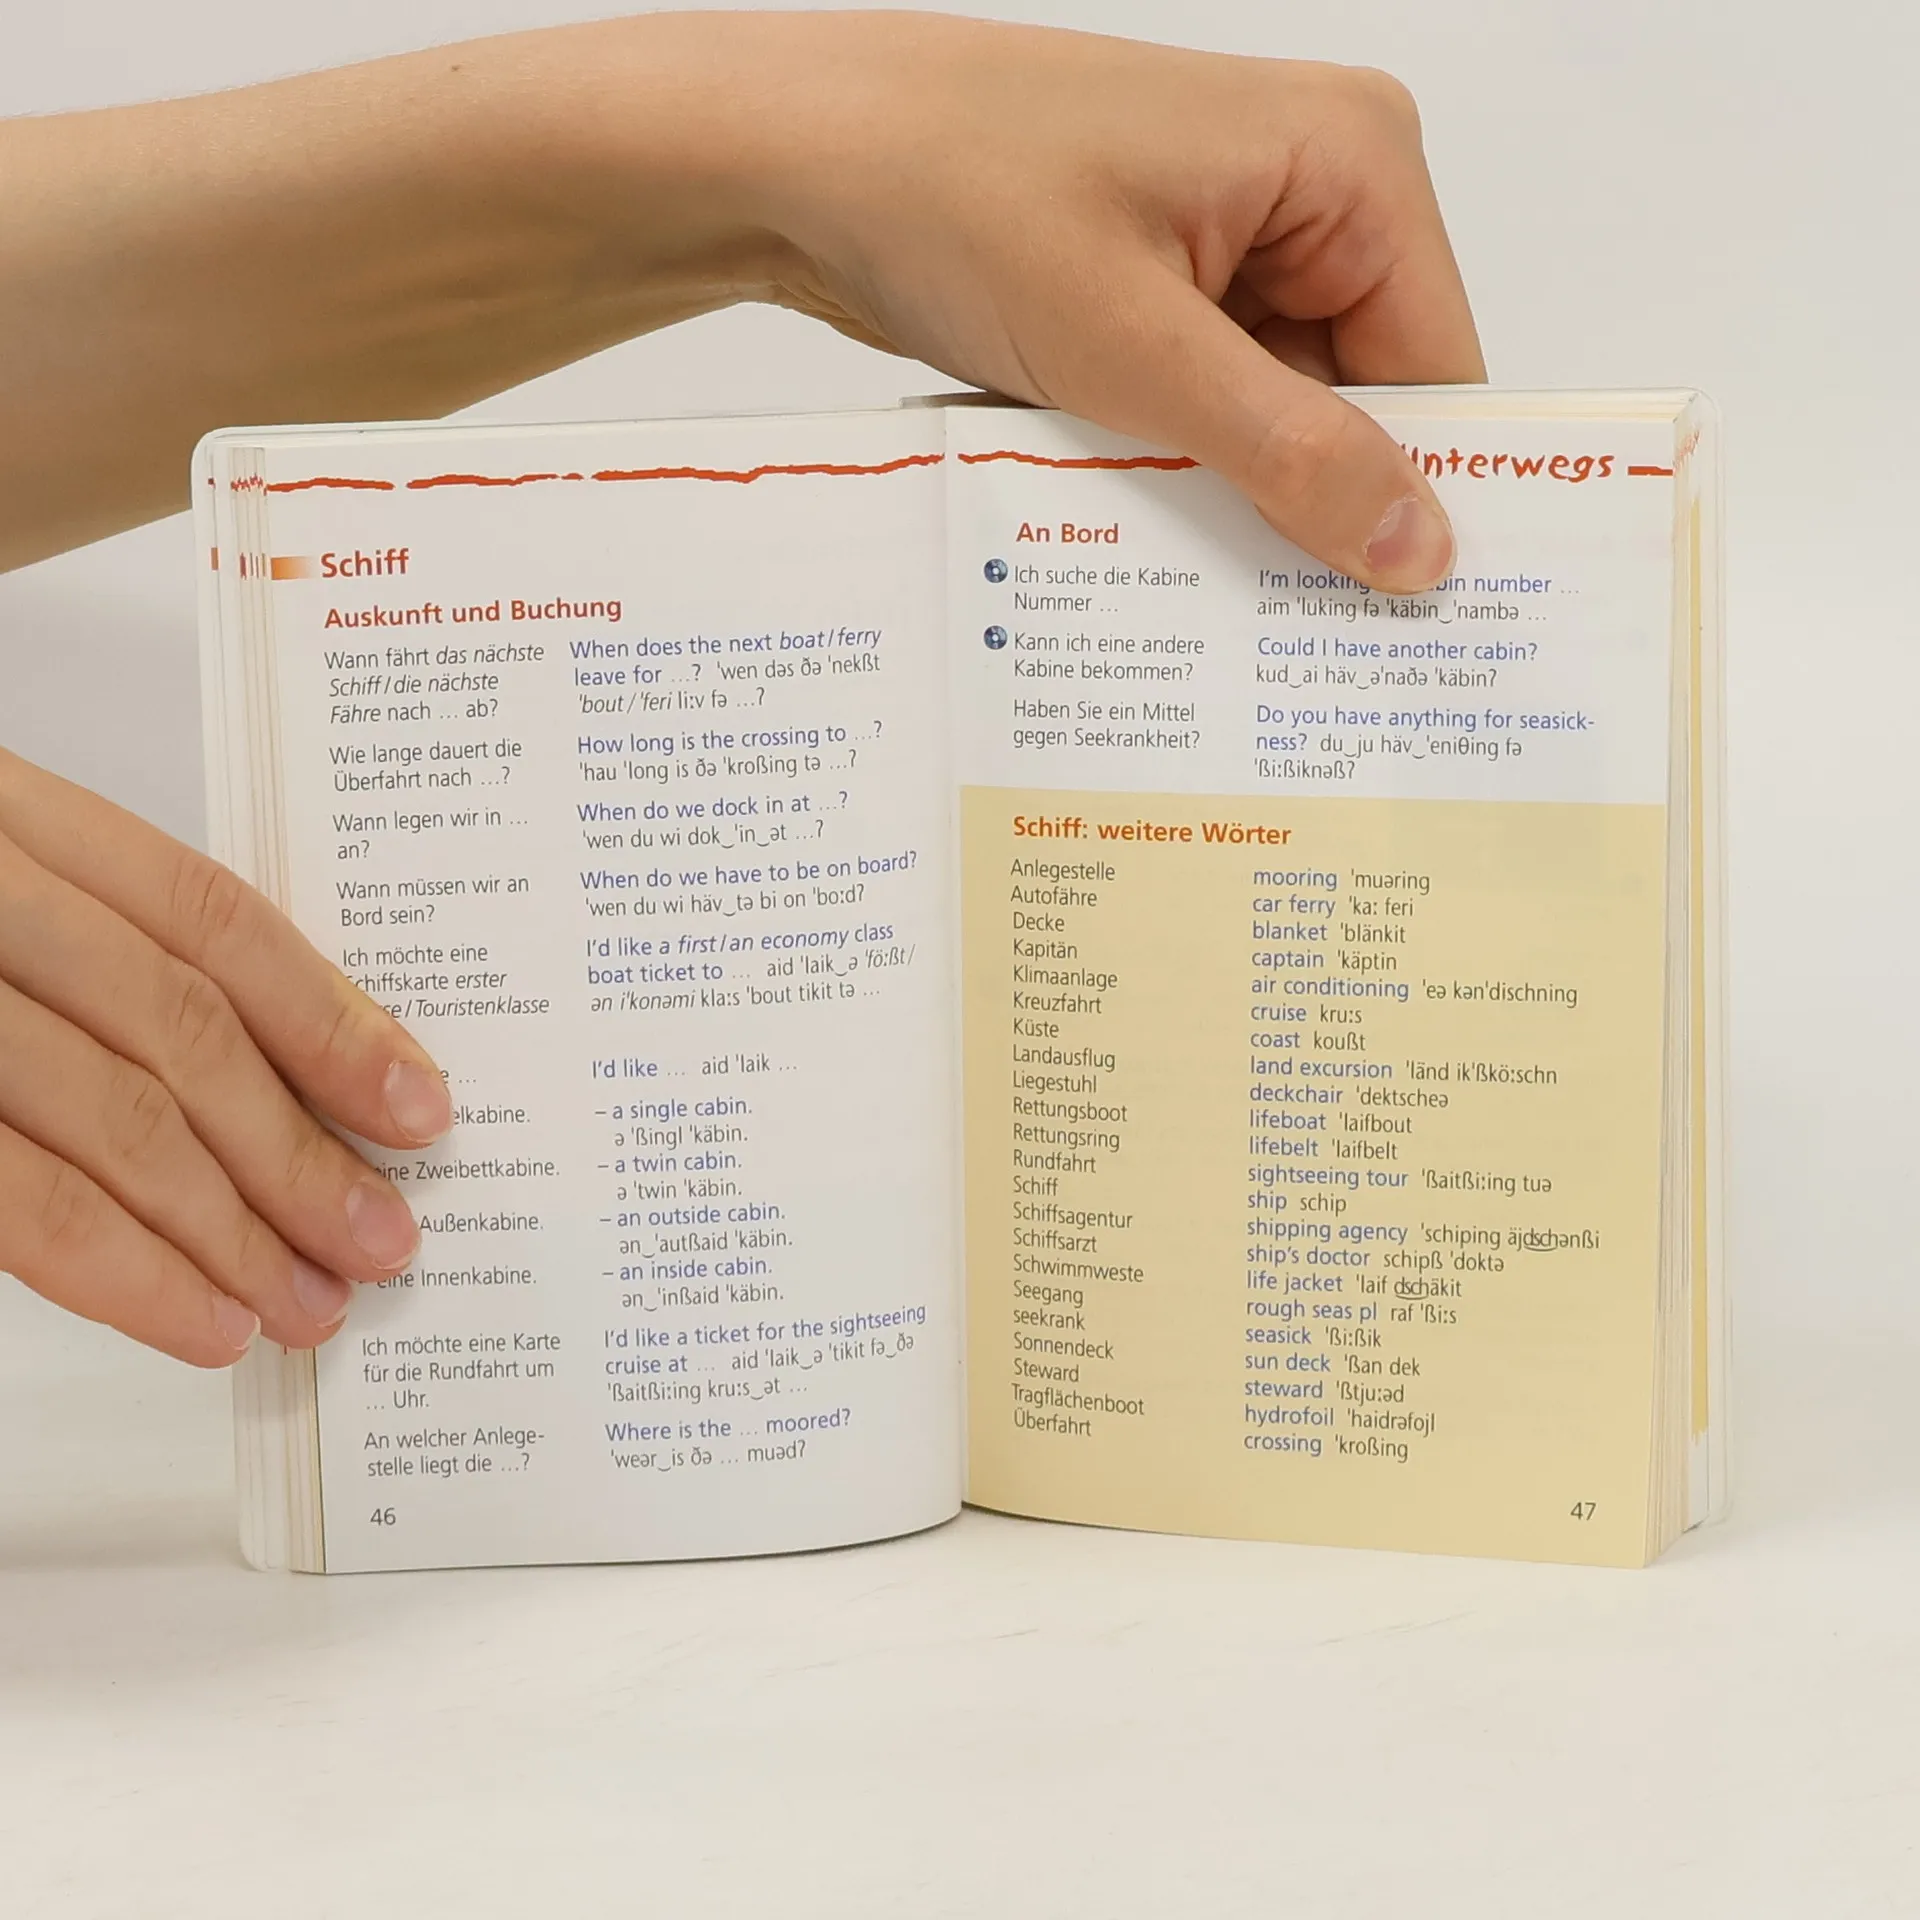 Schiff
Auskunft und Buchung
Wann fährt das nächste
Schiff/die nächste
Fähre nach ... ab?
When does the next boat/ferry
leave for ...? 'wen dəs ðə 'nekßt
'bout/'feri li:v fə ...?
Wie lange dauert die
Überfahrt nach ...?
How long is the crossing to ...?
'hau 'long is ðə 'kroßing tə ...?
Wann legen wir in ...
an?
When do we dock in at ...?
'wen du wi dok‿'in‿ət ...?
Wann müssen wir an
Bord sein?
When do we have to be on board?
'wen du wi häv‿tə bi on 'bo:d?
Ich möchte eine
chiffskarte erster
se/Touristenklasse
I'd like a first/an economy class
boat ticket to ... aid 'laik‿ə 'fö:ßt/
ən i'konəmi kla:s 'bout tikit tə ...
e ...
I'd like ... aid 'laik ...
elkabine.
– a single cabin.
ə 'ßingl 'käbin.
ine Zweibettkabine.
– a twin cabin.
ə 'twin 'käbin.
Außenkabine.
– an outside cabin.
ən‿'autßaid 'käbin.
eine Innenkabine.
– an inside cabin.
ən‿'inßaid 'käbin.
Ich möchte eine Karte
für die Rundfahrt um
... Uhr.
I'd like a ticket for the sightseeing
cruise at ... aid 'laik‿ə 'tikit fə‿ðə
'ßaitßi:ing kru:s‿ət ...
An welcher Anlege-
stelle liegt die ...?
Where is the ... moored?
'weər‿is ðə ... muəd?
46
Unterwegs
An Bord
Ich suche die Kabine
Nummer ...
I'm looking bin number ...
aim 'luking fə 'käbin‿'nambə ...
Kann ich eine andere
Kabine bekommen?
Could I have another cabin?
kud‿ai häv‿ə'naðə 'käbin?
Haben Sie ein Mittel
gegen Seekrankheit?
Do you have anything for seasick-
ness? du‿ju häv‿'eniθing fə
'ßi:ßiknəß?
Schiff: weitere Wörter
Anlegestelle mooring 'muəring
Autofähre car ferry 'ka: feri
Decke blanket 'blänkit
Kapitän captain 'käptin
Klimaanlage air conditioning 'eə kən'dischning
Kreuzfahrt cruise kru:s
Küste coast koußt
Landausflug land excursion 'länd ik'ßkö:schn
Liegestuhl deckchair 'dektscheə
Rettungsboot lifeboat 'laifbout
Rettungsring lifebelt 'laifbelt
Rundfahrt sightseeing tour 'ßaitßi:ing tuə
Schiff ship schip
Schiffsagentur shipping agency 'schiping äjdschənßi
Schiffsarzt ship's doctor schipß 'doktə
Schwimmweste life jacket 'laif dschäkit
Seegang rough seas pl raf 'ßi:s
seekrank seasick 'ßi:ßik
Sonnendeck sun deck 'ßan dek
Steward steward 'ßtju:əd
Tragflächenboot hydrofoil 'haidrəfojl
Überfahrt crossing 'kroßing
47